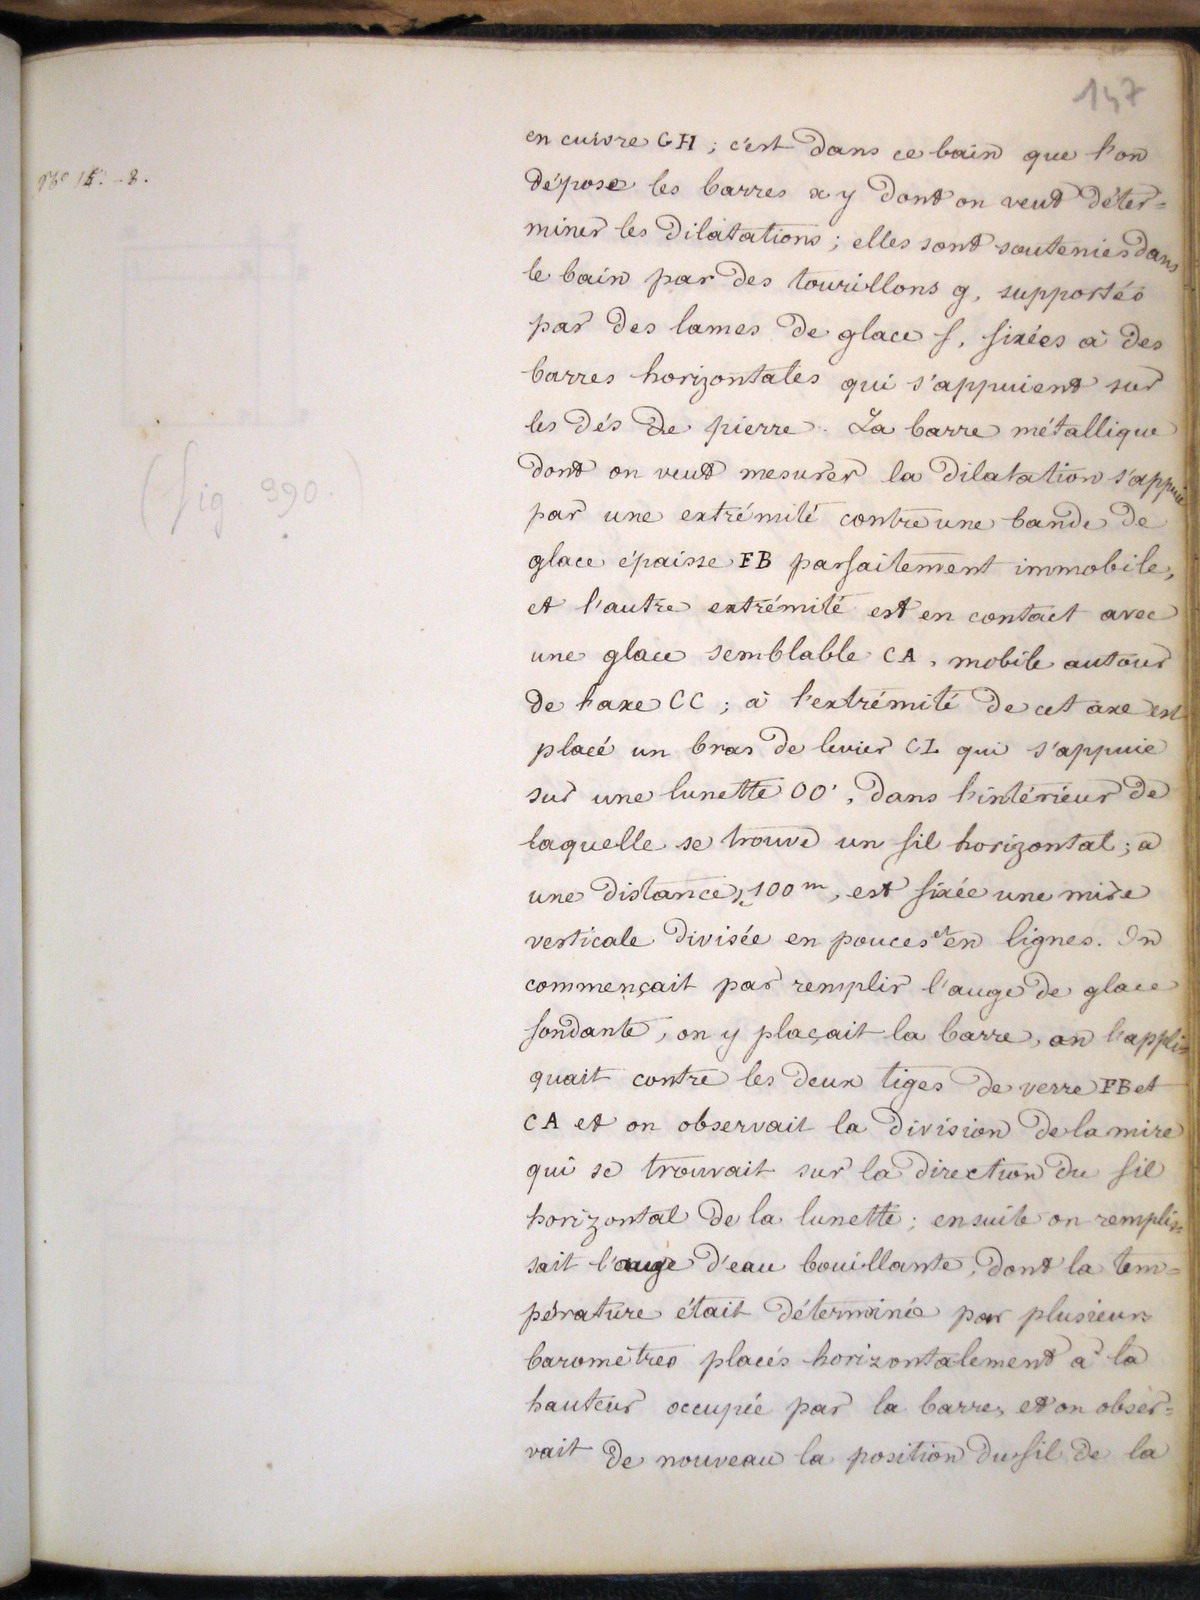 147
en cuivre GH ; c'est dans ce bain que l'on
No 15. - 8.
dépose les barres x y dont on veut déter=
miner les dilatations ; elles sont soutenies dans
le bain par des tourillons g, supportés
par des lames de glace f, fixées à des
barres horizontales qui s'appuient sur
les dés de pierre. La barre métallique
dont on veut mesurer la dilatation s'appuie
(fig 390.)
par une extrémité contre une bande de
glace épaisse FB parfaitement immobile,
et l'autre extrémité est en contact avec
une glace semblable CA, mobile autour
de l'axe CC ; à l'extrémité de cet axe est
placé un bras de levier CL qui s'appuie
sur une lunette OO', dans l'intérieur de
laquelle se trouve un fil horizontal ; à
une distance, 100 m, est fixée une mire
verticale divisée en pouces et en lignes. On
commençait par remplir l'auge de glace
fondante, on y plaçait la barre, on l'appli=
quait contre les deux tiges de verre FB et
CA et on observait la division de la mire
qui se trouvait sur la direction du fil
horizontal de la lunette ; ensuite on remplis=
sait l'auge d'eau bouillante, dont la tem=
pérature était déterminée par plusieurs
baromètres placés horizontalement à la
hauteur occupée par la barre, et on obser=
vait de nouveau la position du fil de la